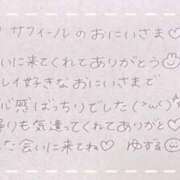 サフィールのおにいさま♡
に来てくれてありがとう
レイ好きなおにいさまで
心感ばっちりでした(>ω<)°°
帰りも気遣ってくれてありがと♡
会いに来てね♡ ゆずる